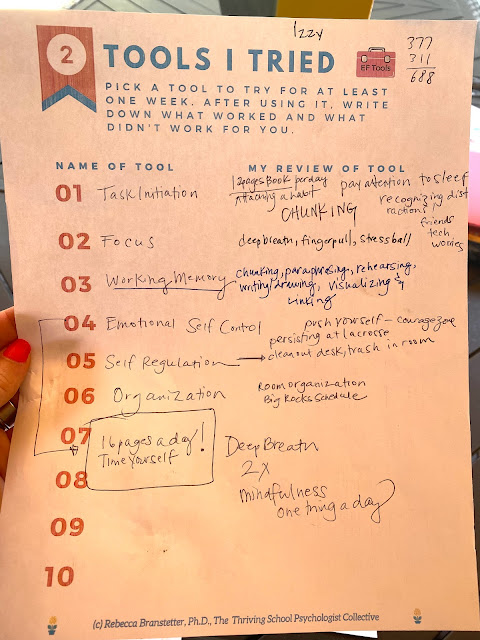 Izzy
2
TOOLS I TRIED
EF Tools
377
311
688
PICK A TOOL TO TRY FOR AT LEAST
ONE WEEK. AFTER USING IT, WRITE
DOWN WHAT WORKED AND WHAT
DIDN'T WORK FOR YOU.
NAME OF TOOL
MY REVIEW OF TOOL
01 Task Initiation
pages Book per day
Attaching a habit
CHUNKING
pay attention to sleep
recognizing dist
ractions!
friends
tech
worries
02 Focus
deep breath, finger pull, stress ball
03 Working Memory
chunking, paraphrasing, rehearsing,
writing/drawing, visualizing &
linking
04 Emotional Self Control
push yourself - courage zone
persisting at lacrosse
05 Self Regulation
clean out desk, trash in room
06 Organization
Room organization
Big Rocks Schedule
07
16 pages a day!
Time Yourself
08
Deep Breath
2X
mindfulness
one thing a day
09
10
(c) Rebecca Branstetter, Ph.D., The Thriving School Psychologist Collective